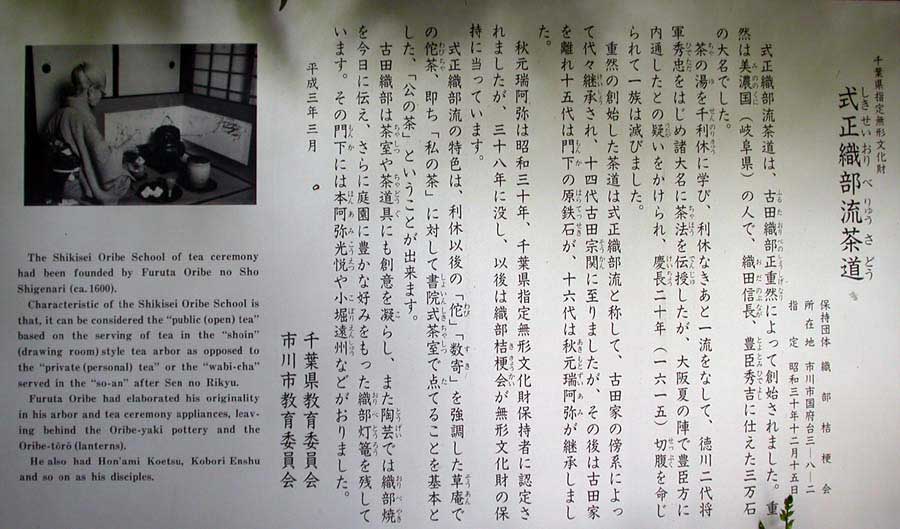 千葉県指定無形文化財
式正織部流茶道
しきせいおりべりゅうさどう
保持団体 織部桔梗会
所在地 市川市国府台三―八―二
指定 昭和三十年十二月十五日
式正織部流茶道は、古田織部正重然によって創始されました。重
然は美濃国（岐阜県）の人で、織田信長、豊臣秀吉に仕えた三万石
の大名でした。
茶の湯を千利休に学び、利休なきあと一流をなして、徳川二代将
軍秀忠をはじめ諸大名に茶法を伝授したが、大阪夏の陣で豊臣方に
内通したとの疑いをかけられ、慶長二十年（一六一五）切腹を命じ
られて一族は滅びました。
重然の創始した茶道は式正織部流と称して、古田家の傍系によっ
て代々継承され、十四代古田宗関に至りましたが、その後は古田家
を離れ十五代は門下の原鉄石が、十六代は秋元瑞阿弥が継承しまし
た。
秋元瑞阿弥は昭和三十年、千葉県指定無形文化財保持者に認定さ
れましたが、三十八年に没し、以後は織部桔梗会が無形文化財の保
持に当っています。
式正織部流の特色は、利休以後の「侘」「数寄」を強調した草庵で
の侘茶、即ち「私の茶」に対して書院式茶室で点てることを基本と
した、「公の茶」ということが出来ます。
古田織部は茶室や茶道具にも創意を凝らし、また陶芸では織部焼
を今日に伝え、さらに庭園に豊かな好みをもった織部灯篭を残して
います。その門下には本阿弥光悦や小堀遠州などがおりました。
平成三年三月
千葉県教育委員会
市川市教育委員会
The Shikisei Oribe School of tea ceremony
had been founded by Furuta Oribe no Sho
Shigenari (ca. 1600).
Characteristic of the Shikisei Oribe School is
that, it can be considered the “public (open) tea”
based on the serving of tea in the “shoin”
(drawing room) style tea arbor as opposed to
the “private (personal) tea” or the “wabi-cha”
served in the “so-an” after Sen no Rikyu.
Furuta Oribe had elaborated his originality
in his arbor and tea ceremony appliances, leav-
ing behind the Oribe-yaki pottery and the
Oribe-tōrō (lanterns).
He also had Hon'ami Koetsu, Kobori Enshu
and so on as his disciples.